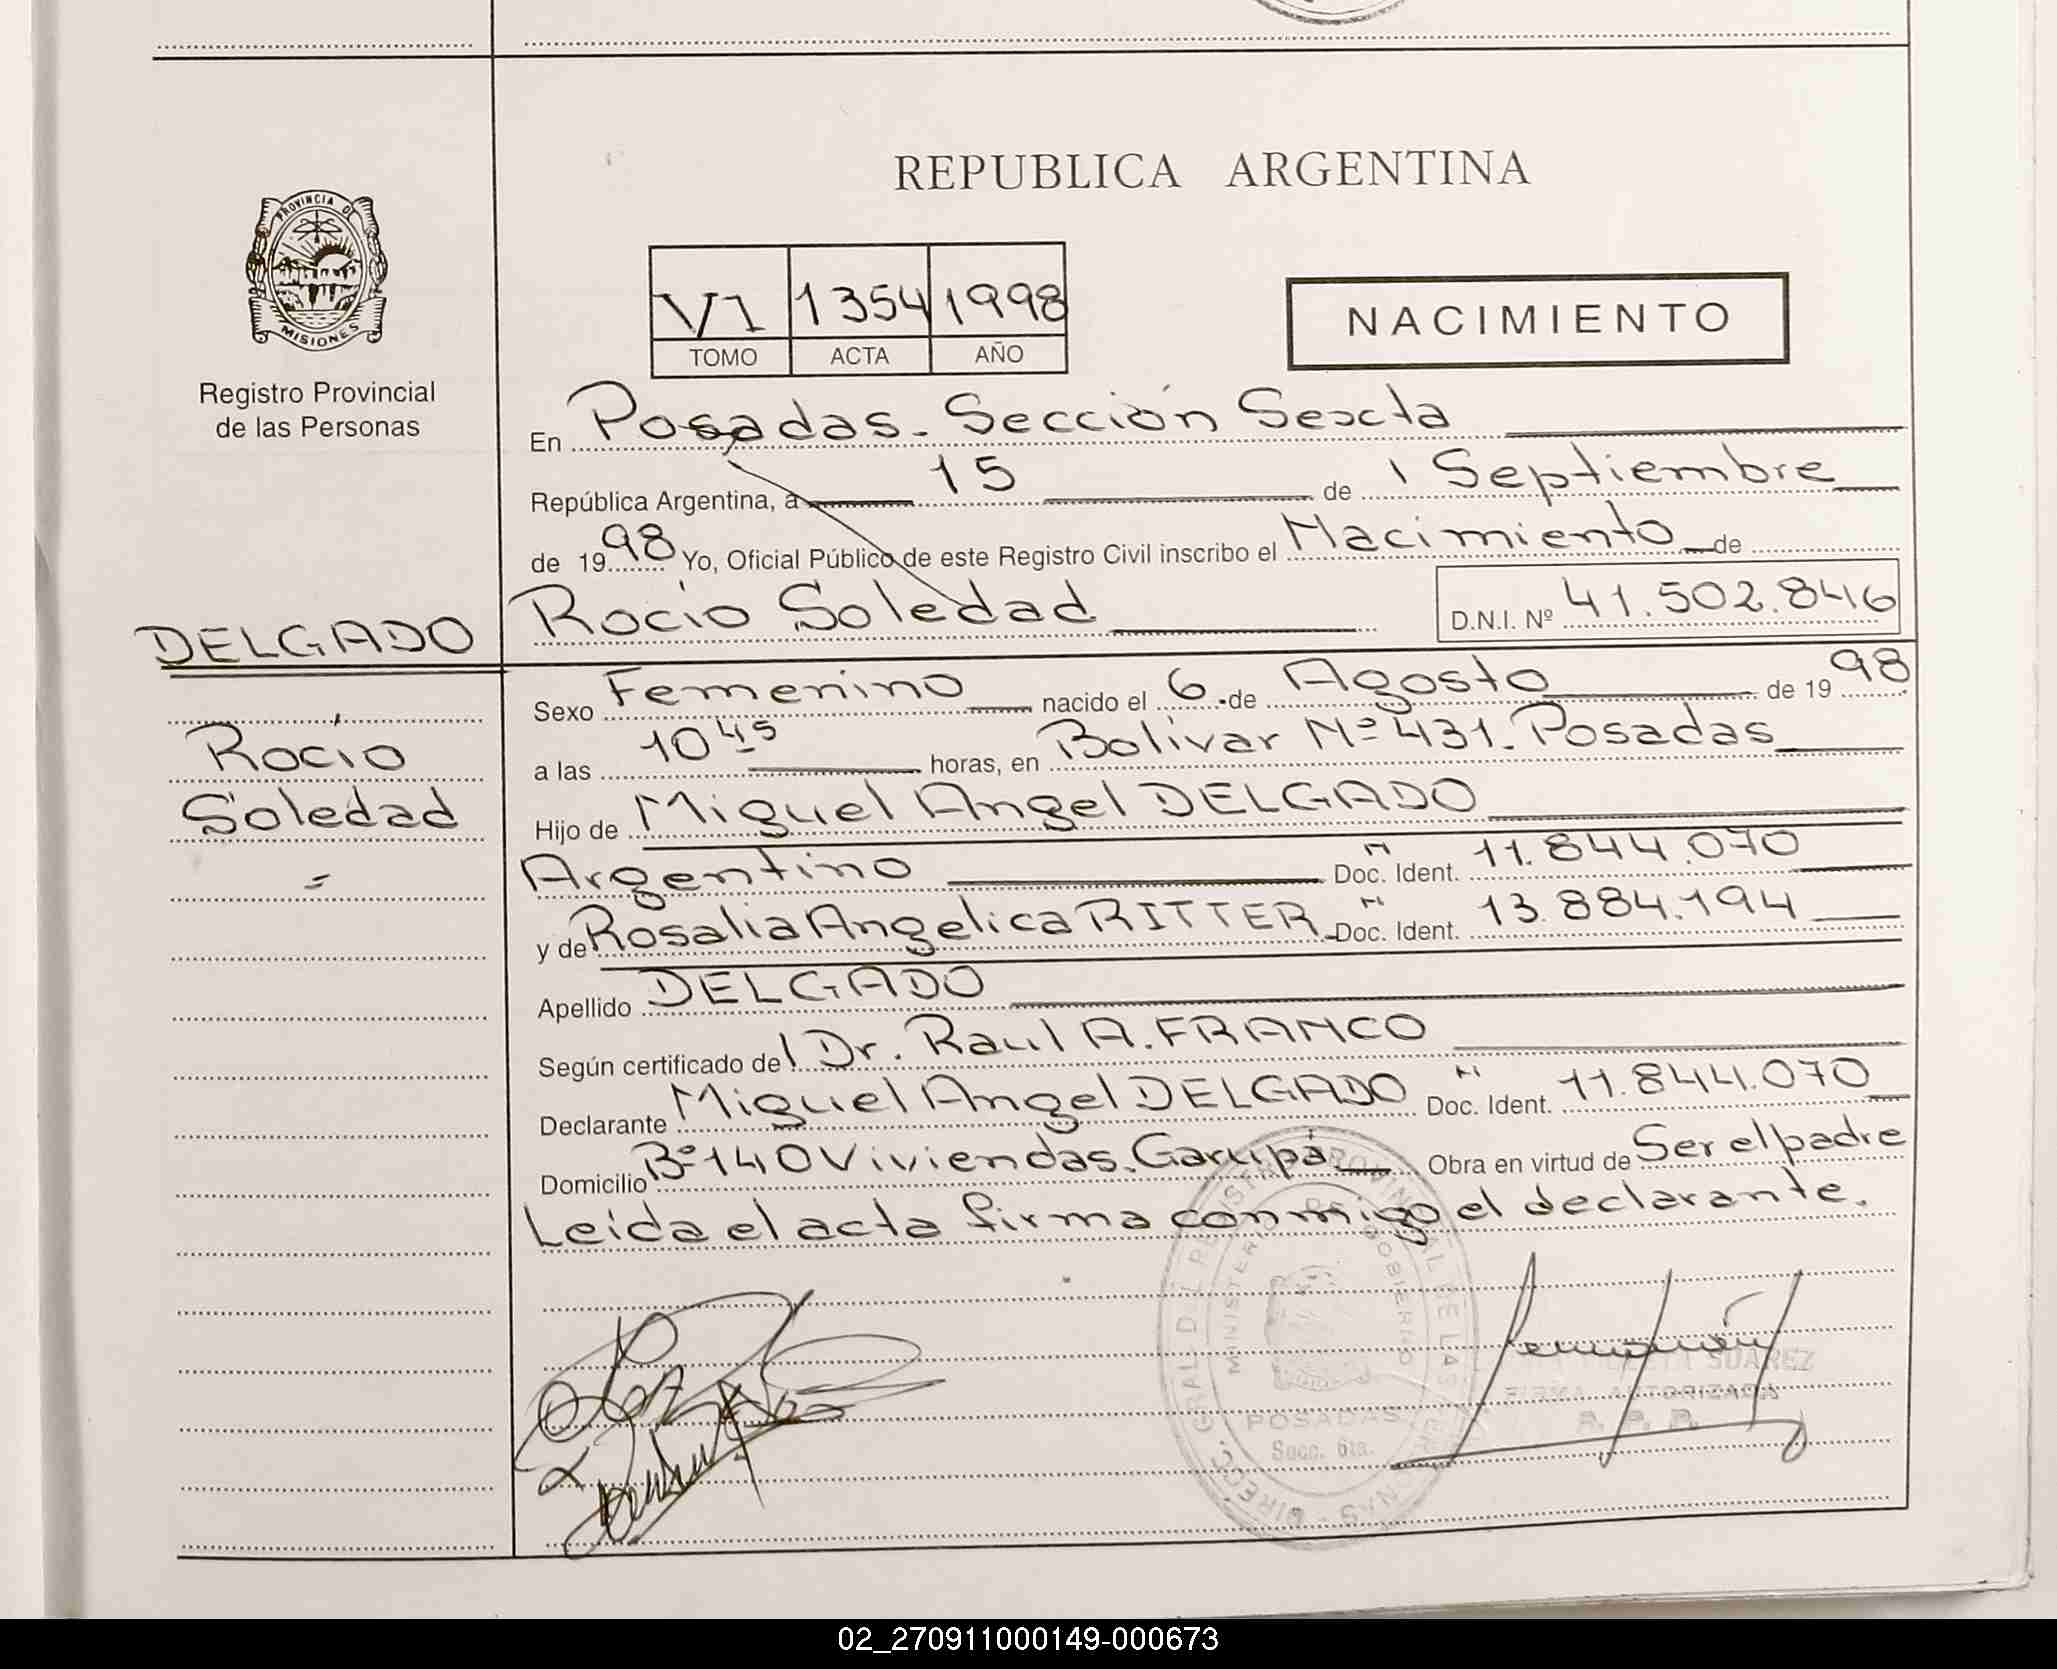 REPUBLICA ARGENTINA
PROVINCIA DE
MISIONES
Registro Provincial
de las Personas
VI 1354 1998
TOMO ACTA AÑO
NACIMIENTO
En Posadas. Sección Sexta
República Argentina, a 15 de Septiembre
de 1998 Yo, Oficial Público de este Registro Civil inscribo el Nacimiento de
Rocío Soledad D.N.I. Nº 41.502.846
DELGADO
Rocío
Soledad
=
Sexo Femenino nacido el 6 de Agosto de 1998
a las 10 45 horas, en Bolívar Nº 431. Posadas
Hijo de Miguel Angel DELGADO
Argentino Doc. Ident. 11.844.070
y de Rosalia Angelica RITTER Doc. Ident. 13.884.194
Apellido DELGADO
Según certificado del Dr. Raul A. FRANCO
Declarante Miguel Angel DELGADO Doc. Ident. 11.844.070
Domicilio Bº 140 Viviendas. Garupá Obra en virtud de Ser el padre
Leída el acta firma conmigo el declarante.
DIREC. GRAL. DEL REGISTRO PROVINCIAL DE LAS PERSONAS
MINISTERIO DE GOBIERNO
POSADAS
Secc. 6ta.
SUAREZ
FIRMA AUTORIZADA
R. P. P.
02_270911000149-000673